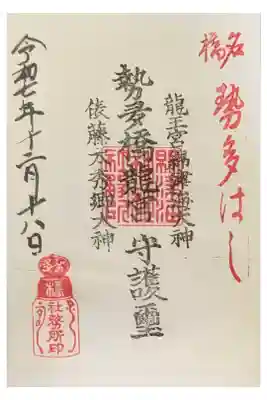 名橋
勢多はし
龍王宮綿津海大神
勢多橋龍宮守護璽
俵藤太秀郷大神
令和七年十二月十八日
社務所印